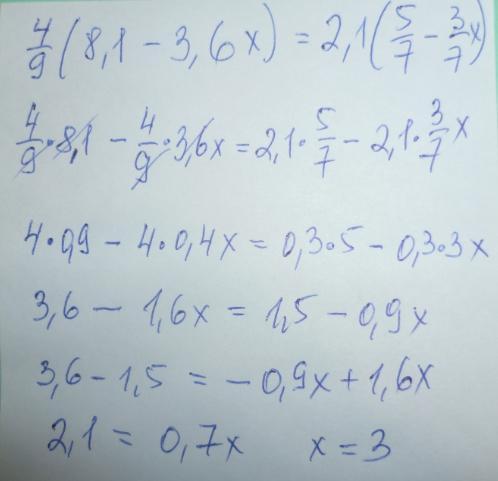 4/9(8,1 - 3,6x) = 2,1(5/7 - 3/7x)
4/9·8,1 - 4/9·3,6x = 2,1·5/7 - 2,1·3/7x
4·0,9 - 4·0,4x = 0,3·5 - 0,3·3x
3,6 - 1,6x = 1,5 - 0,9x
3,6 - 1,5 = -0,9x + 1,6x
2,1 = 0,7x x = 3